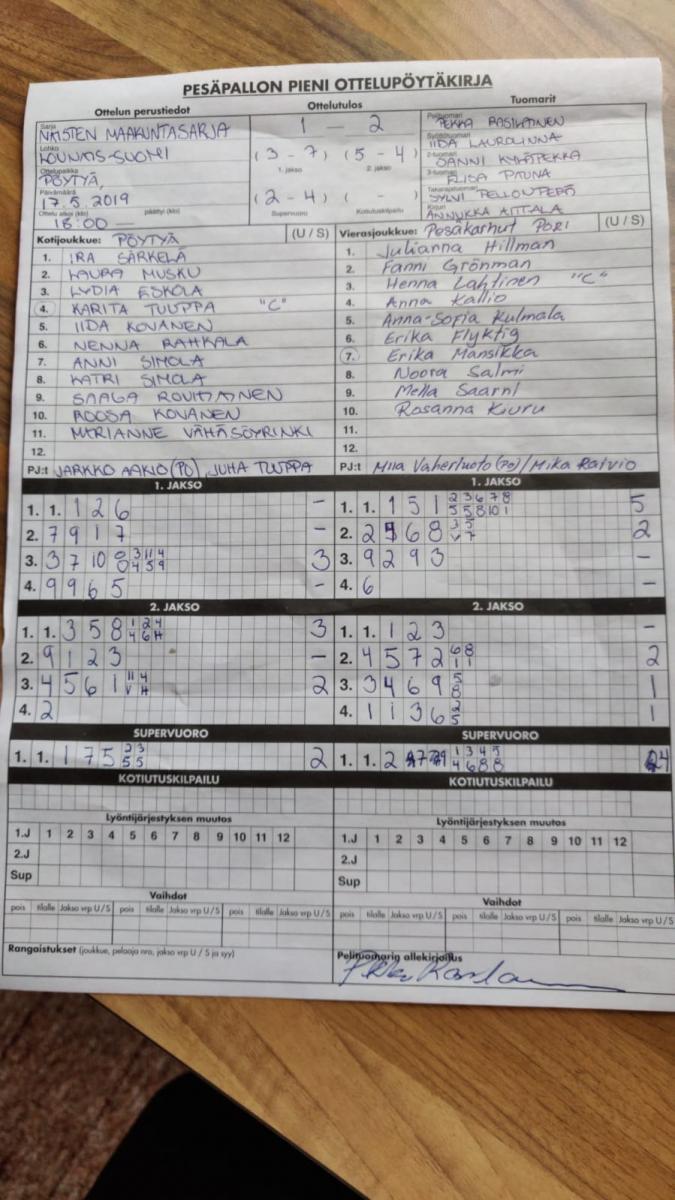 PESÄPALLON PIENI OTTELUPÖYTÄKIRJA
Ottelun perustiedot
Ottelutulos
Tuomarit
Sarja
NAISTEN MAAKUNTASARJA
Lohko
LOUNAIS-SUOMI
Ottelupaikka
PÖYTYÄ,
Päivämäärä
17.5.2019
Ottelu alkoi (klo) päättyi (klo)
18:00
1 - 2
(3 - 7) (5 - 4)
1. jakso 2. jakso
(2 - 4) ( - )
Supervuoro Kotiutuskilpailu
Pelituomari
PEKKA RASILAINEN
Syöttötuomari
IIDA LAUROLINNA
2-tuomari
3-tuomari
ELISA PAUNA
Takarajatuomari
SYLVI
Kirjuri
ANNUKKA
Kotijoukkue: PÖYTYÄ (U / S)
1. IRA SÄRKELÄ
2. LAURA MUSKU
3. LYDIA ESKOLA
4. KARITA TUUPPA "C"
5. IIDA KOVANEN
6. NENNA RAHKALA
7. ANNI SIMOLA
8. KATRI SIMOLA
9. SAAGA
10. ROOSA KOVANEN
11. MARIANNE VÄHÄSÖYRINKI
12.
PJ:t JARKKO AAKIO (PO), JUHA TUUPPA
Vierasjoukkue: Pesäkarhut PORI (U / S)
1. Julianna Hillman
2. Fanni Grönman
3. Henna Lahtinen "C"
4. Anna Kallio
5. Anna-Sofia Kulmala
6. Erika Flyktig
7. Erika Mansikka
8. Noora Salmi
9. Mella Saarni
10. Rosanna Kiuru
11.
12.
PJ:t Miia Vaherluoto (PO) / Mika Raivio
1. JAKSO
1. 1. 1 2 6 -
2. 7 9 1 7 -
3. 3 7 10 0 3 11 4 3
0 4 5 9
4. 9 9 6 5 -
1. JAKSO
1. 1. 1 5 1 2 3 6 7 8 5
5 5 8 10 1
2. 2 6 8 3 5 2
V 7
3. 9 2 9 3 -
4. 6 -
2. JAKSO
1. 1. 3 5 8 1 2 4 3
4 6 H
2. 9 1 2 3 -
3. 4 5 6 1 11 4 2
V H
4. 2
2. JAKSO
1. 1. 1 2 3 -
2. 4 5 7 2 6 8 2
1 1
3. 3 4 6 9 5 1
8
4. 1 1 3 6 2 1
5
SUPERVUORO
1. 1. 1 7 5 2 3 2
5 5
SUPERVUORO
1. 1. 2 1 3 4 5 4
4 6 8 8
KOTIUTUSKILPAILU
KOTIUTUSKILPAILU
Lyöntijärjestyksen muutos
1.J 1 2 3 4 5 6 7 8 9 10 11 12
2.J
Sup
Lyöntijärjestyksen muutos
1.J 1 2 3 4 5 6 7 8 9 10 11 12
2.J
Sup
Vaihdot
pois tilalle Jakso vrp U / S pois tilalle Jakso vrp U / S pois tilalle Jakso vrp U / S
Vaihdot
pois tilalle Jakso vrp U / S pois tilalle Jakso vrp U / S pois tilalle Jakso vrp U / S
Rangaistukset (joukkue, pelaaja nro, jakso vrp U / S ja syy)
Pelituomarin allekirjoitus